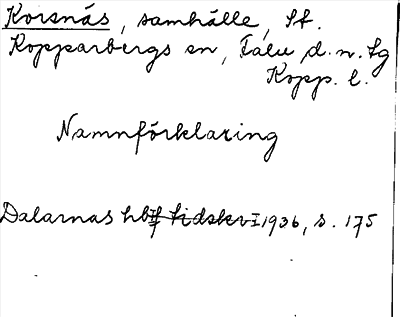 Korsnäs, samhälle, St.
Kopparbergs sn, Falu d. n. tg
Kopp. l.
Namnförklaring
Dalarnas hbf tidskr I 1936, s. 175